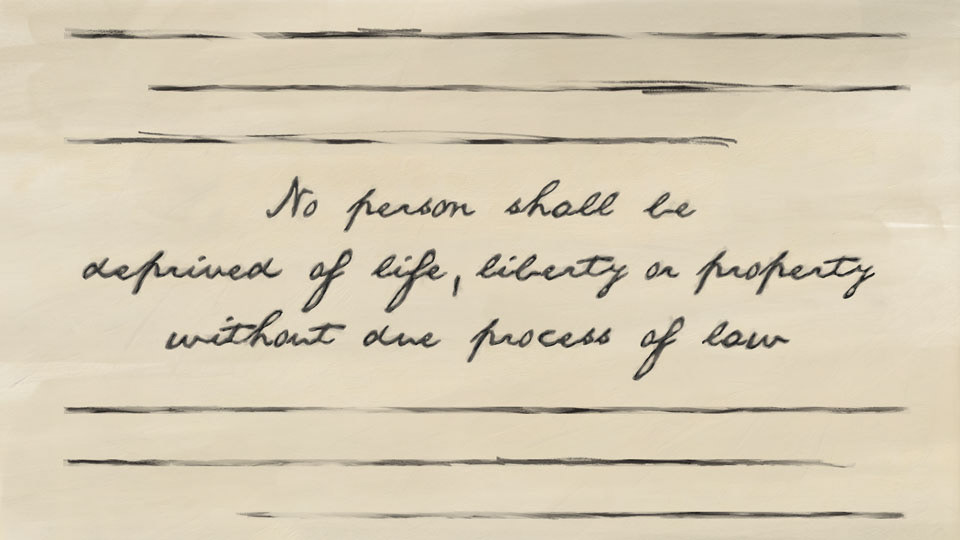 No person shall be
deprived of life, liberty or property
without due process of law